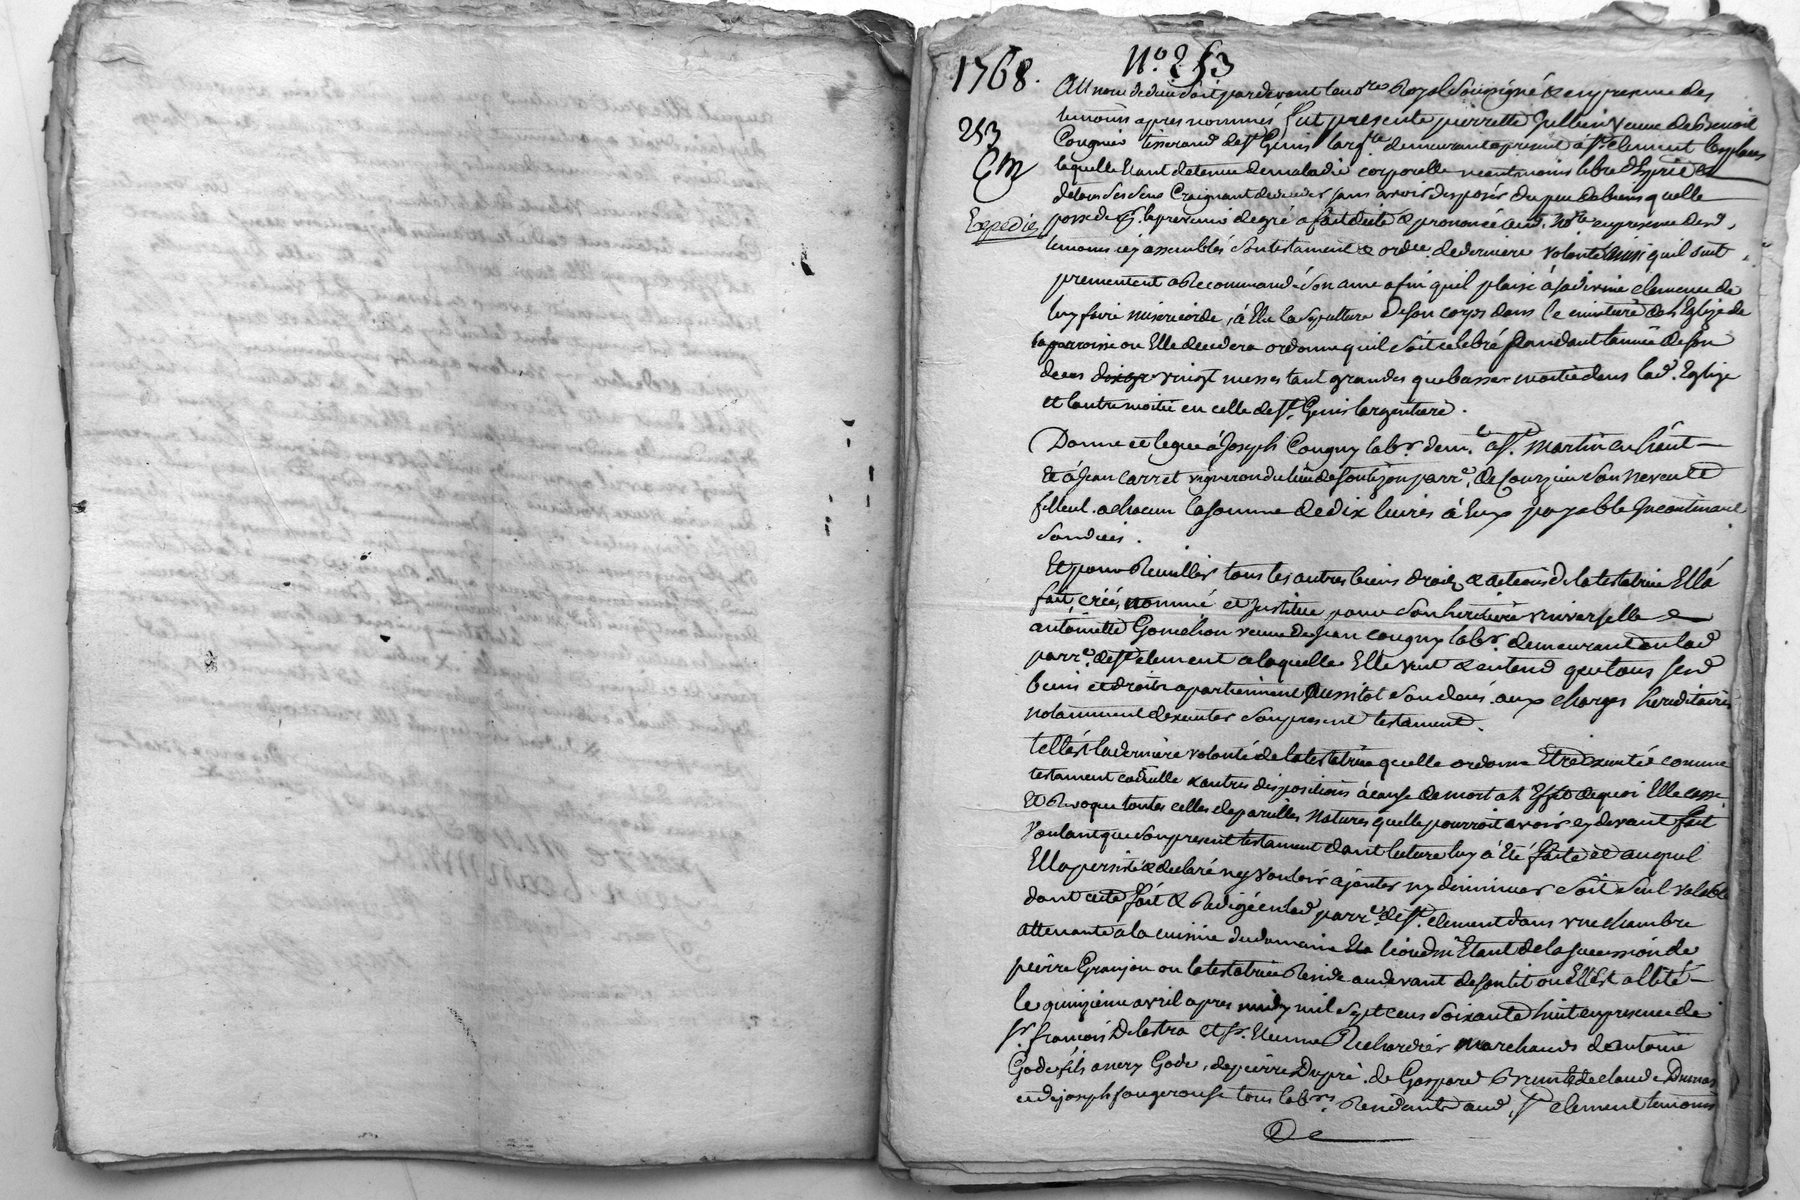 1768.
N.º 253
253
Cm
Expedié
Au nom de dieu soit pardevant le no.re Royal soussigné & en presence des
temoins apres nommés fut presente pierrette Jullien veuve de Benoit
Cougnier tisserand de st. Genis larg.re demeurant a present a st. clement les places
laquelle Etant detenue de maladie corporelle neantmoins libre d'Esprit &
de tous ses sens Craignant de deceder sans avoir disposé du peu de biens quelle
possede, de gré a fait dicté & prononcé aud. no.re en presence desd.
temoins icy assemblés son testament & ordce. de derniere volonté ainsi quil suit
premierement a Recommandé son ame afin quil plaise à sa divine clemence de
luy faire misericorde, à Elu la sepulture de son corps dans le cimetière de l'Eglise de
la parroisse ou Elle decedera ordonne quil soit celebré pendant l'année de son
deces vingt messes tant grandes que basses moitié dans lad. Eglise
et l'autre moitié en celle de st. Genis largentiere.
Donne et legue à Joseph Cougny lab.r dem.t a st. Martin en haut
et à Jean Carret vigneron du lieu de parr.e de Courzieu son neveu et
filleul a chacun la somme de dix livres à Eux payable Incontinant
son deces.
Et pour Recueillir tous les autres biens droits & actions de la testatrice Ell'a
fait, créé, nommé et Institué pour son heritiere universelle
antoinette Gomelion veuve de Jean cougny lab.r demeurant en lad.
parr.e de st. clement a laquelle Elle veut & entend que tous sesd.
biens et droits apartiennent aussitot son decés aux charges hereditaires
notamment dexecuter son present testament.
telle est la derniere volonté de la testatrice quelle ordonne Etre Executée comme
testament codicille & autres dispositions à cause de mort a l'Effet de quoi Elle casse
Et Revoque toutes celles de pareilles natures quelle pourroit avoir cy devant fait
Voulant que son present testament dont lecture luy à Eté faite et auquel
Ell'a persisté & declaré n'y vouloir ajouter ny diminuer soit seul valable
dont acte fait & Redigé en lad. parr.e de st. clement dans une chambre
attenante a la cuisine du domaine Etant de la succession de
pierre Granjon ou la testatrice Reside au devant de son lit ou Ell'est allité
le quinzieme avril apres midy mil sept cens soixante huit en presence de
sr. françois Delestra et sr. Etienne Richardier marchands de antoine
Gode fils a nery Gode, de pierre Dupré, de Gaspard de claude Dumas
et de joseph fougerouse tous lab.rs Residants aud. st. clement temoins
De